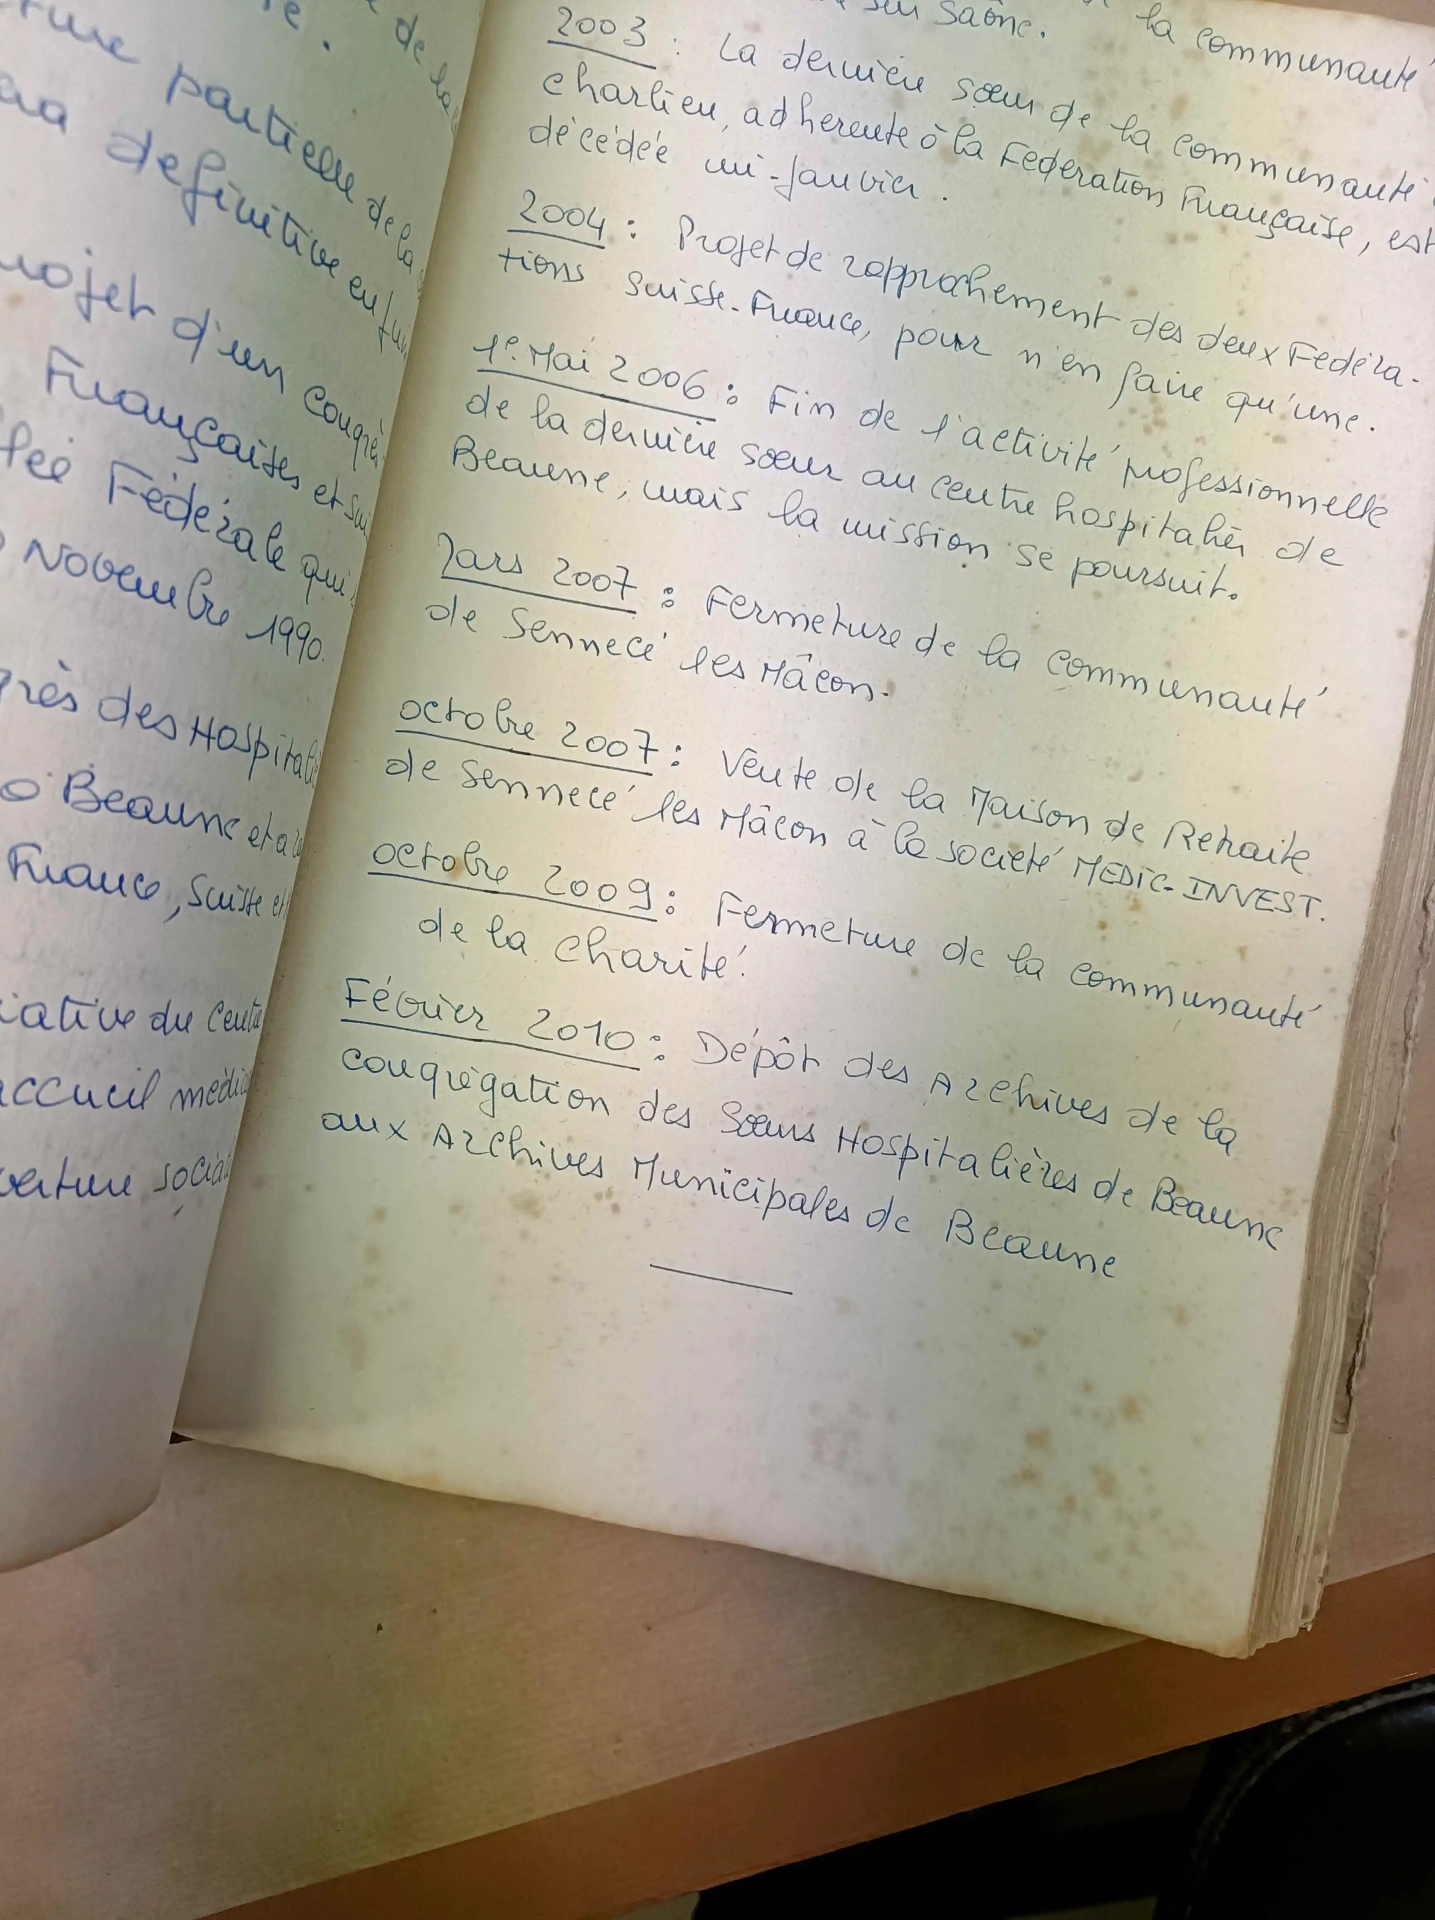 de la
re.
partielle de la
definitive en
projet d'un congrès
Françaises et
Fédérale qui
Novembre 1990.
des Hospital
Beaune et a
France, Suisse et
iative du Cent
accueil médic
verture social
la communauté
sur Saône.
2003 : La dernière sœur de la communauté
Charlieu, adherente à la Federation Française, est
décédée mi-janvier.
2004 : Projet de rapprochement des deux Fedéra-
tions Suisse-France, pour n'en faire qu'une.
1e. Mai 2006 : Fin de l'activité professionnelle
de la dernière sœur au centre hospitalier de
Beaune, mais la mission se poursuit.
Mars 2007 : Fermeture de la communauté
de Sennecé les Mâcon.
octobre 2007 : Vente de la Maison de Retraite
de Sennecé les Mâcon à la société MEDIC-INVEST.
octobre 2009 : Fermeture de la communauté
de la Charité.
Février 2010 : Dépôt des Archives de la
congrégation des Sœurs Hospitalières de Beaune
aux Archives Municipales de Beaune